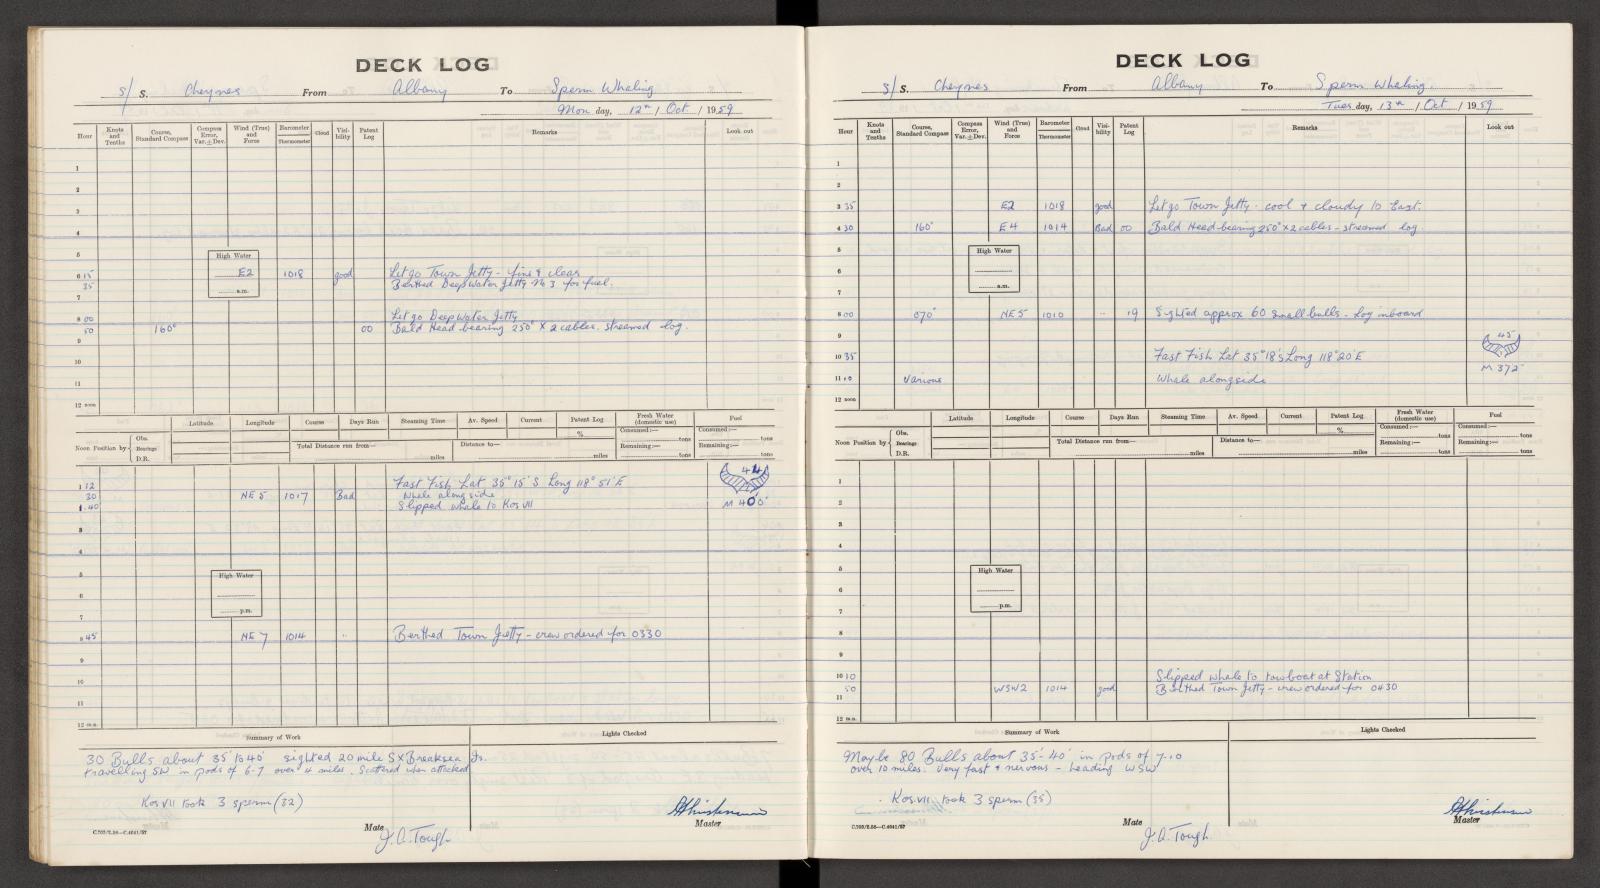 DECK LOG
s/ S. Cheynes From Albany To Sperm Whaling
Mon day, 12th / Oct / 1959
Hour Knots and Tenths Course, Standard Compass Compass Error, Var. ± Dev. Wind (True) and Force Barometer Thermometer Cloud Visibility Patent Log Remarks Look out
1
2
3
4
5
High Water
6 15 E2 1018 good Let go Town Jetty - fine & clear
35 Berthed Deep Water Jetty No 3 for fuel.
a.m.
7
8 00 Let go Deep Water Jetty
50 160° 00 Bald Head bearing 250° x 2 cables. streamed log.
9
10
11
12 noon
Latitude Longitude Course Days Run Steaming Time Av. Speed Current Patent Log Fresh Water (domestic use) Fuel
% Consumed:— tons Consumed:— tons
Noon Position by Obs. Bearings D.R. Total Distance run from— miles Distance to— miles Remaining:— tons Remaining:— tons
1 12 Fast Fish Lat 35° 15' S Long 118° 51' E 44
30 NE 5 1017 Bad Whale alongside
1.40 Slipped whale to Kos VII M 40'0"
3
4
5
High Water
6
p.m.
7
8 45 NE 7 1014 " Berthed Town Jetty - crew ordered for 0330
9
10
11
12 m.n.
Summary of Work Lights Checked
30 Bulls about 35' to 40' sighted 20 mile SxBreaksea Is.
travelling SW in pods of 6-7 over 4 miles. Scattered when attacked
Kos VII took 3 sperm (32)
Master
Mate
J.A. Tough
C.702/2.56—C.4641/57
DECK LOG
s/ S. Cheynes From Albany To Sperm Whaling.
Tues day, 13th / Oct / 1959
Hour Knots and Tenths Course, Standard Compass Compass Error, Var. ± Dev. Wind (True) and Force Barometer Thermometer Cloud Visibility Patent Log Remarks Look out
1
2
3 35 E2 1018 good Let go Town Jetty - cool & cloudy to East.
4 30 160° E4 1014 Bad 00 Bald Head bearing 250° x 2 cables - streamed log
5
High Water
6
a.m.
7
8 00 070° NE 5 1010 " 19 Sighted approx 60 small bulls - Log inboard
9
45
10 35 Fast Fish Lat 35° 18' S Long 118° 20' E
M 37'2"
11 10 Various Whale alongside
12 noon
Latitude Longitude Course Days Run Steaming Time Av. Speed Current Patent Log Fresh Water (domestic use) Fuel
% Consumed:— tons Consumed:— tons
Noon Position by Obs. Bearings D.R. Total Distance run from— miles Distance to— miles Remaining:— tons Remaining:— tons
1
2
3
4
5
High Water
6
p.m.
7
8
9
10 10 Slipped whale to towboat at Station
50 WSW2 1014 good Berthed Town Jetty - crew ordered for 0430
11
12 m.n.
Summary of Work Lights Checked
Maybe 80 Bulls about 35'-40' in pods of 7-10
over 10 miles. Very fast & nervous - heading WSW
Kos VII took 3 sperm (35)
Master
Mate
J.A. Tough
C.702/2.56—C.4641/57